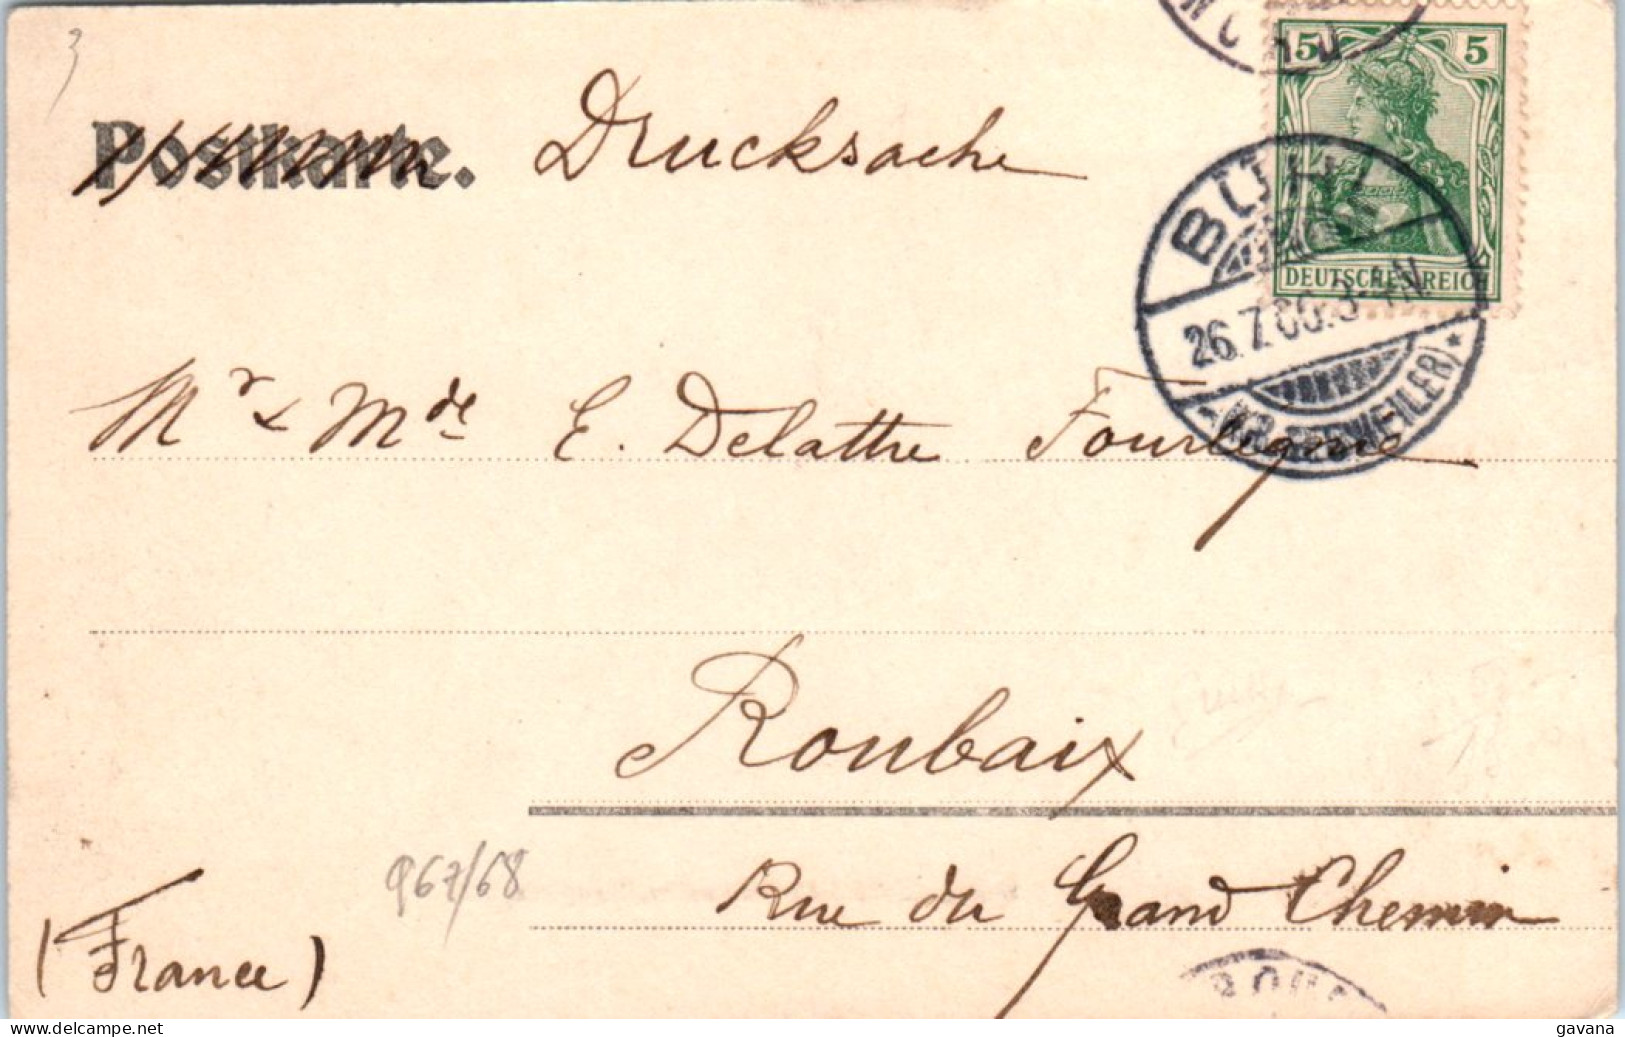 3
Postkarte. Drucksache
5 5
DEUTSCHES REICH
BÜHL
26.7.06.3-4N.
*(KR. GEBWEILER)*
Mr & Mde E. Delattre
Roubaix
Rue du Grand Chemin
967/68
(France)
ROUB
delcampe.net
gavana